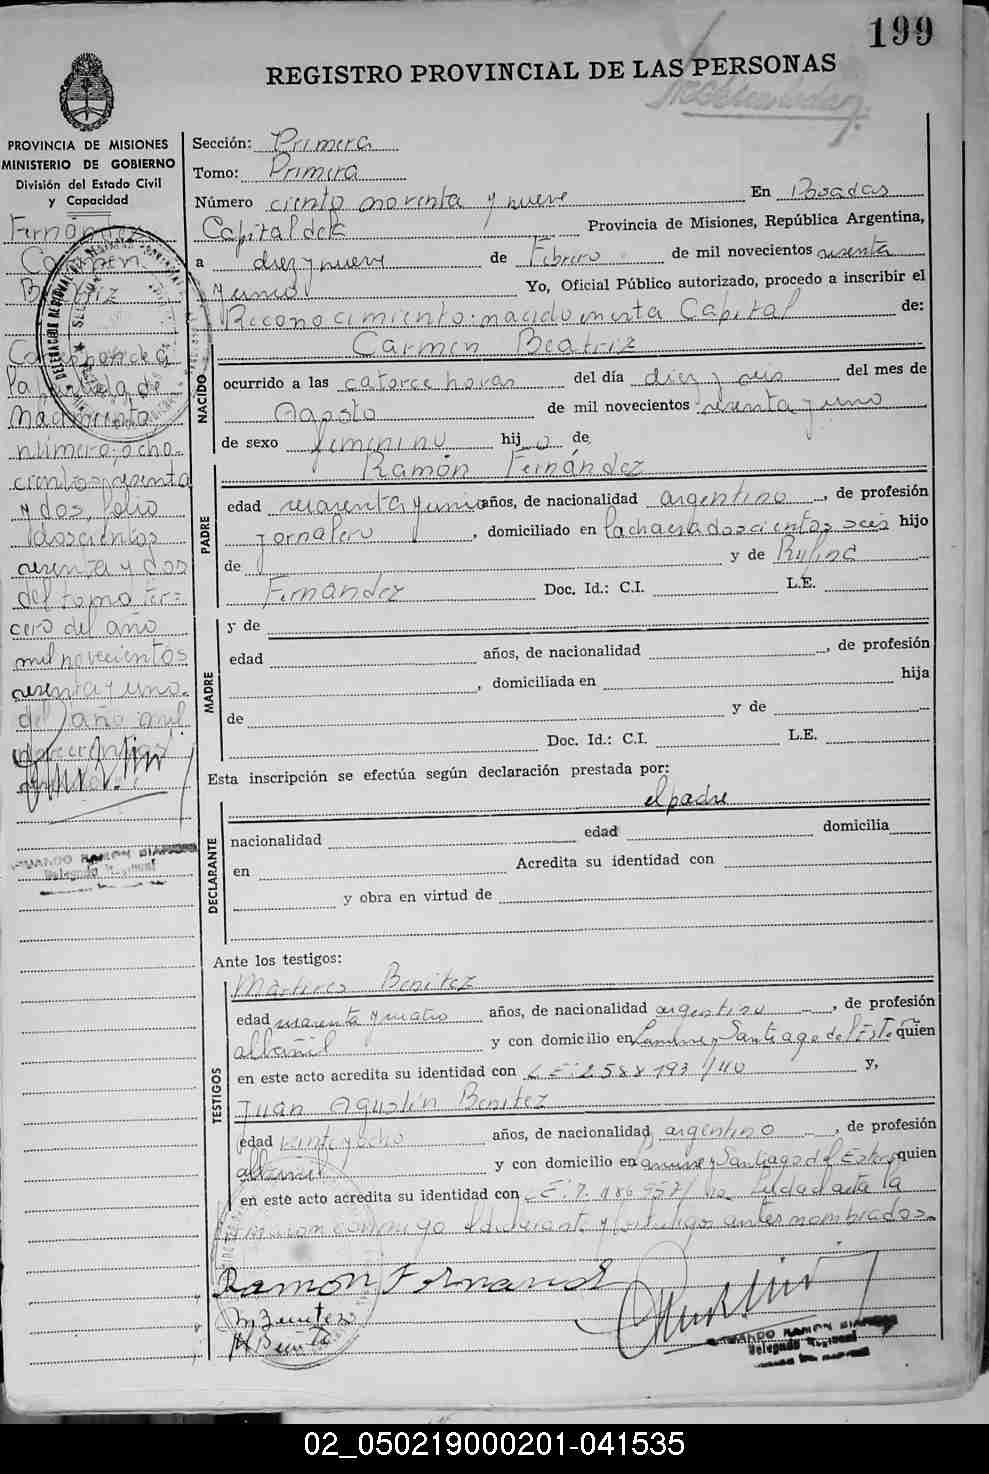 199
REGISTRO PROVINCIAL DE LAS PERSONAS
PROVINCIA DE MISIONES
MINISTERIO DE GOBIERNO
División del Estado Civil
y Capacidad
Fernández
Carmen
Beatriz
Corresponde a
la
de
nacimiento
número; ocho-
cientos sesenta
y dos, folio
doscientos
sesenta y dos
del tomo ter=
cero del año
mil novecientos
sesenta y uno.
del año mil
novecientos
Sección: Primera
Tomo: Primera
Número ciento noventa y nueve En Posadas
Capital de la Provincia de Misiones, República Argentina,
a diez y nueve de Febrero de mil novecientos sesenta
y Yo, Oficial Público autorizado, procedo a inscribir el
Reconocimiento: nacido en esta Capital de:
Carmen Beatriz
NACIDO
ocurrido a las catorce horas del día diez y seis del mes de
Agosto de mil novecientos sesenta y uno
de sexo femenino hij o de
PADRE
Ramón Fernández
edad años, de nacionalidad argentino, de profesión
jornalero, domiciliado en la chacra doscientos seis hijo
de y de Rufina
Fernandez Doc. Id.: C.I. L.E.
MADRE
y de
edad años, de nacionalidad , de profesión
, domiciliada en hija
de y de
Doc. Id.: C.I. L.E.
Esta inscripción se efectúa según declaración prestada por:
el padre
DECLARANTE
nacionalidad edad domicilia
en Acredita su identidad con
y obra en virtud de
Ante los testigos:
TESTIGOS
Martires Benitez
edad cuarenta y cuatro años, de nacionalidad argentino, de profesión
albañil y con domicilio en y Santiago del Est. quien
en este acto acredita su identidad con L E: 2.588 193 / y,
Juan Agustín Benitez
edad veinte y ocho años, de nacionalidad argentino, de profesión
albañil y con domicilio en y Santiago del Estero quien
en este acto acredita su identidad con L E: 7. Leida acta la
firmaron conmigo y testigos antes nombrados.
Ramon Fernandez
RAMON
Delegado Regional
02_050219000201-041535